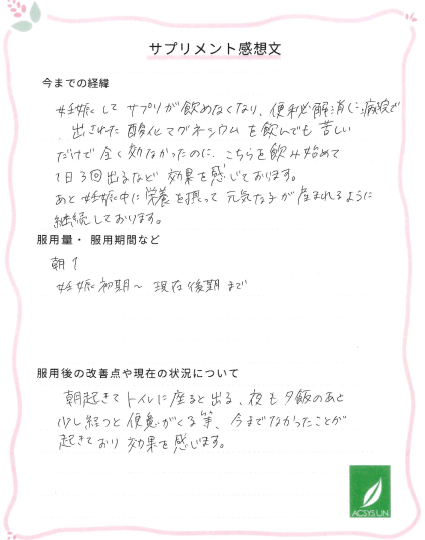 サプリメント感想文
今までの経緯
妊娠して サプリが飲めなくなり、便秘解消に病院で
出された 酸化マグネシウム を飲んでも 苦しい
だけで 全く効かなかったのに、こちらを飲み始めて
1日3回出るなど 効果を感じております。
あと 妊娠中に 栄養を摂って 元気な子が産まれるように
継続しております。
服用量・ 服用期間など
朝1
妊娠初期〜 現在後期まで
服用後の改善点や現在の状況について
朝起きて トイレに座ると出る、夜も夕飯のあと
少し経つと 便意がくる等、今までなかったことが
起きており 効果を感じます。
ACSYS UN.